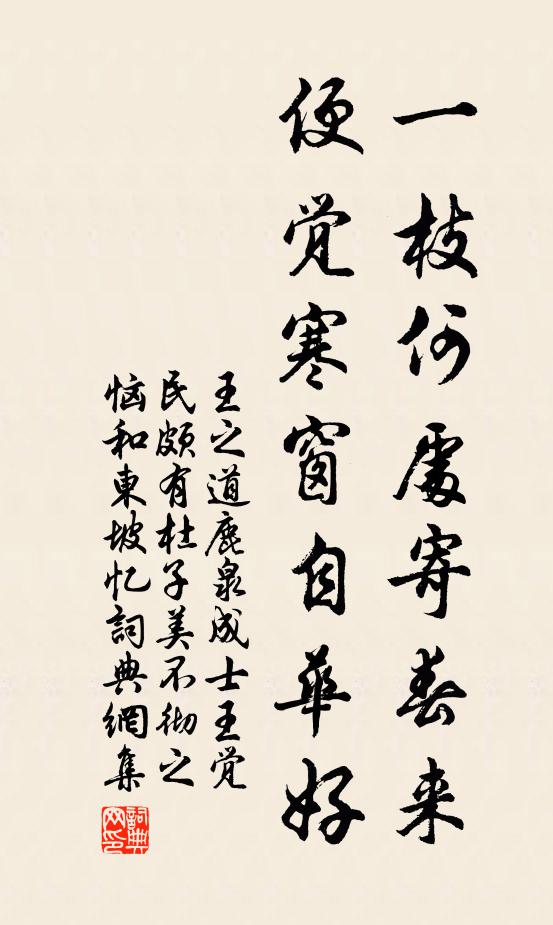 一枝何處寄春来
便觉寒窗自華好
王之道鹿泉成士王觉
民頗有杜子美不彻之
恼和東坡忆詞典網集
詞典网印